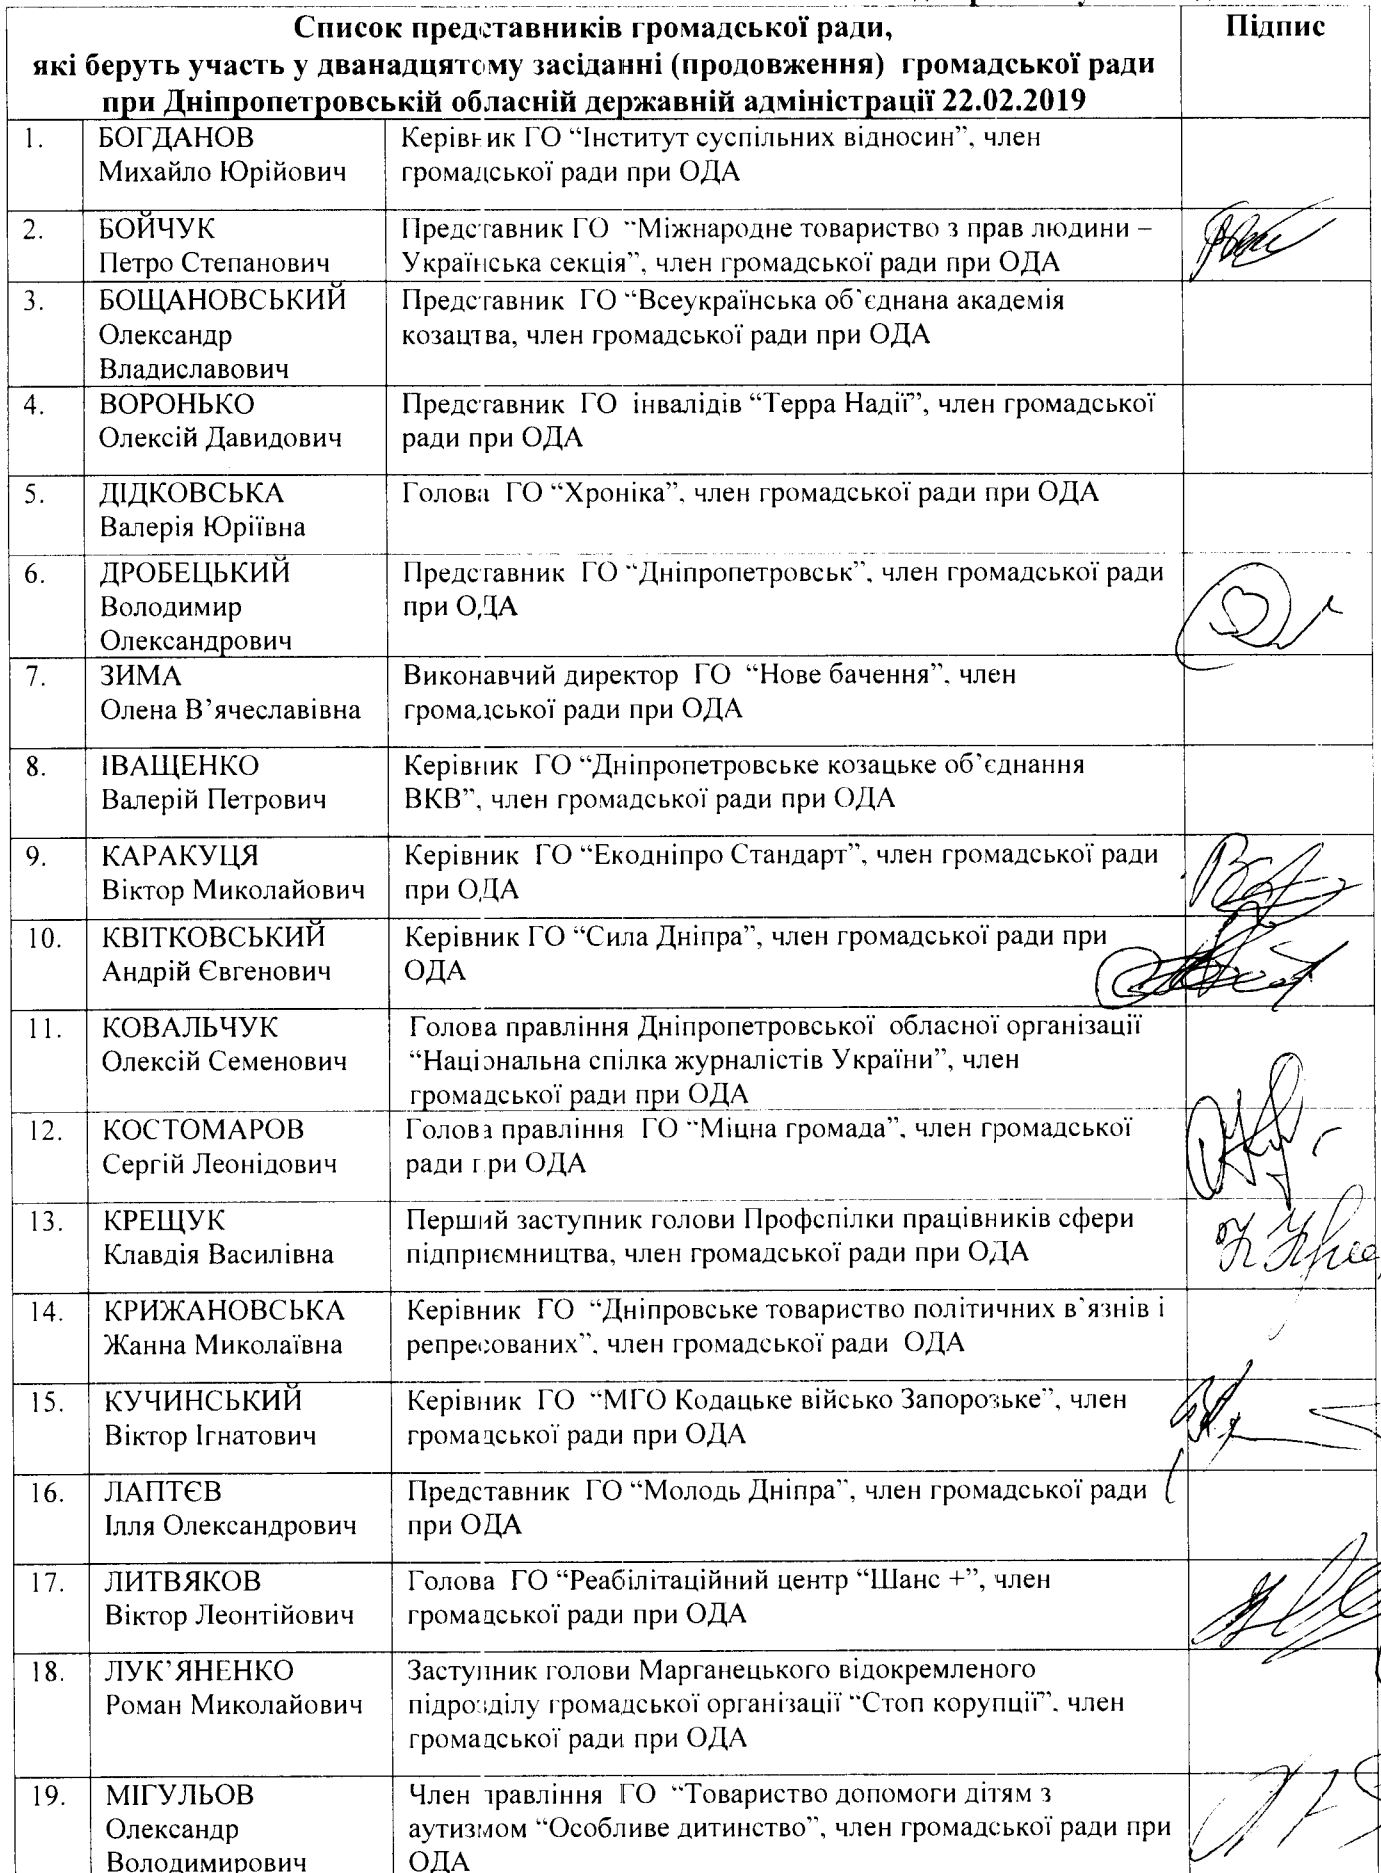 Список представників громадської ради,
які беруть участь у дванадцятому засіданні (продовження) громадської ради
при Дніпропетровській обласній державній адміністрації 22.02.2019
Підпис
1.
БОГДАНОВ
Михайло Юрійович
Керівник ГО “Інститут суспільних відносин”, член
громадської ради при ОДА
2.
БОЙЧУК
Петро Степанович
Представник ГО “Міжнародне товариство з прав людини –
Українська секція”, член громадської ради при ОДА
3.
БОЩАНОВСЬКИЙ
Олександр
Владиславович
Представник ГО “Всеукраїнська об`єднана академія
козацтва, член громадської ради при ОДА
4.
ВОРОНЬКО
Олексій Давидович
Представник ГО інвалідів “Терра Надії”, член громадської
ради при ОДА
5.
ДІДКОВСЬКА
Валерія Юріївна
Голова ГО “Хроніка”, член громадської ради при ОДА
6.
ДРОБЕЦЬКИЙ
Володимир
Олександрович
Представник ГО “Дніпропетровськ”, член громадської ради
при ОДА
7.
ЗИМА
Олена В’ячеславівна
Виконавчий директор ГО “Нове бачення”, член
громадської ради при ОДА
8.
ІВАЩЕНКО
Валерій Петрович
Керівник ГО “Дніпропетровське козацьке об`єднання
ВКВ”, член громадської ради при ОДА
9.
КАРАКУЦЯ
Віктор Миколайович
Керівник ГО “Екодніпро Стандарт”, член громадської ради
при ОДА
10.
КВІТКОВСЬКИЙ
Андрій Євгенович
Керівник ГО “Сила Дніпра”, член громадської ради при
ОДА
11.
КОВАЛЬЧУК
Олексій Семенович
Голова правління Дніпропетровської обласної організації
“Національна спілка журналістів України”, член
громадської ради при ОДА
12.
КОСТОМАРОВ
Сергій Леонідович
Голова правління ГО “Міцна громада”, член громадської
ради при ОДА
13.
КРЕЩУК
Клавдія Василівна
Перший заступник голови Профспілки працівників сфери
підприємництва, член громадської ради при ОДА
14.
КРИЖАНОВСЬКА
Жанна Миколаївна
Керівник ГО “Дніпровське товариство політичних в`язнів і
репресованих”, член громадської ради ОДА
15.
КУЧИНСЬКИЙ
Віктор Ігнатович
Керівник ГО “МГО Кодацьке військо Запорозьке”, член
громадської ради при ОДА
16.
ЛАПТЄВ
Ілля Олександрович
Представник ГО “Молодь Дніпра”, член громадської ради
при ОДА
17.
ЛИТВЯКОВ
Віктор Леонтійович
Голова ГО “Реабілітаційний центр “Шанс +”, член
громадської ради при ОДА
18.
ЛУК’ЯНЕНКО
Роман Миколайович
Заступник голови Марганецького відокремленого
підрозділу громадської організації “Стоп корупції”, член
громадської ради при ОДА
19.
МІГУЛЬОВ
Олександр
Володимирович
Член правління ГО “Товариство допомоги дітям з
аутизмом “Особливе дитинство”, член громадської ради при
ОДА